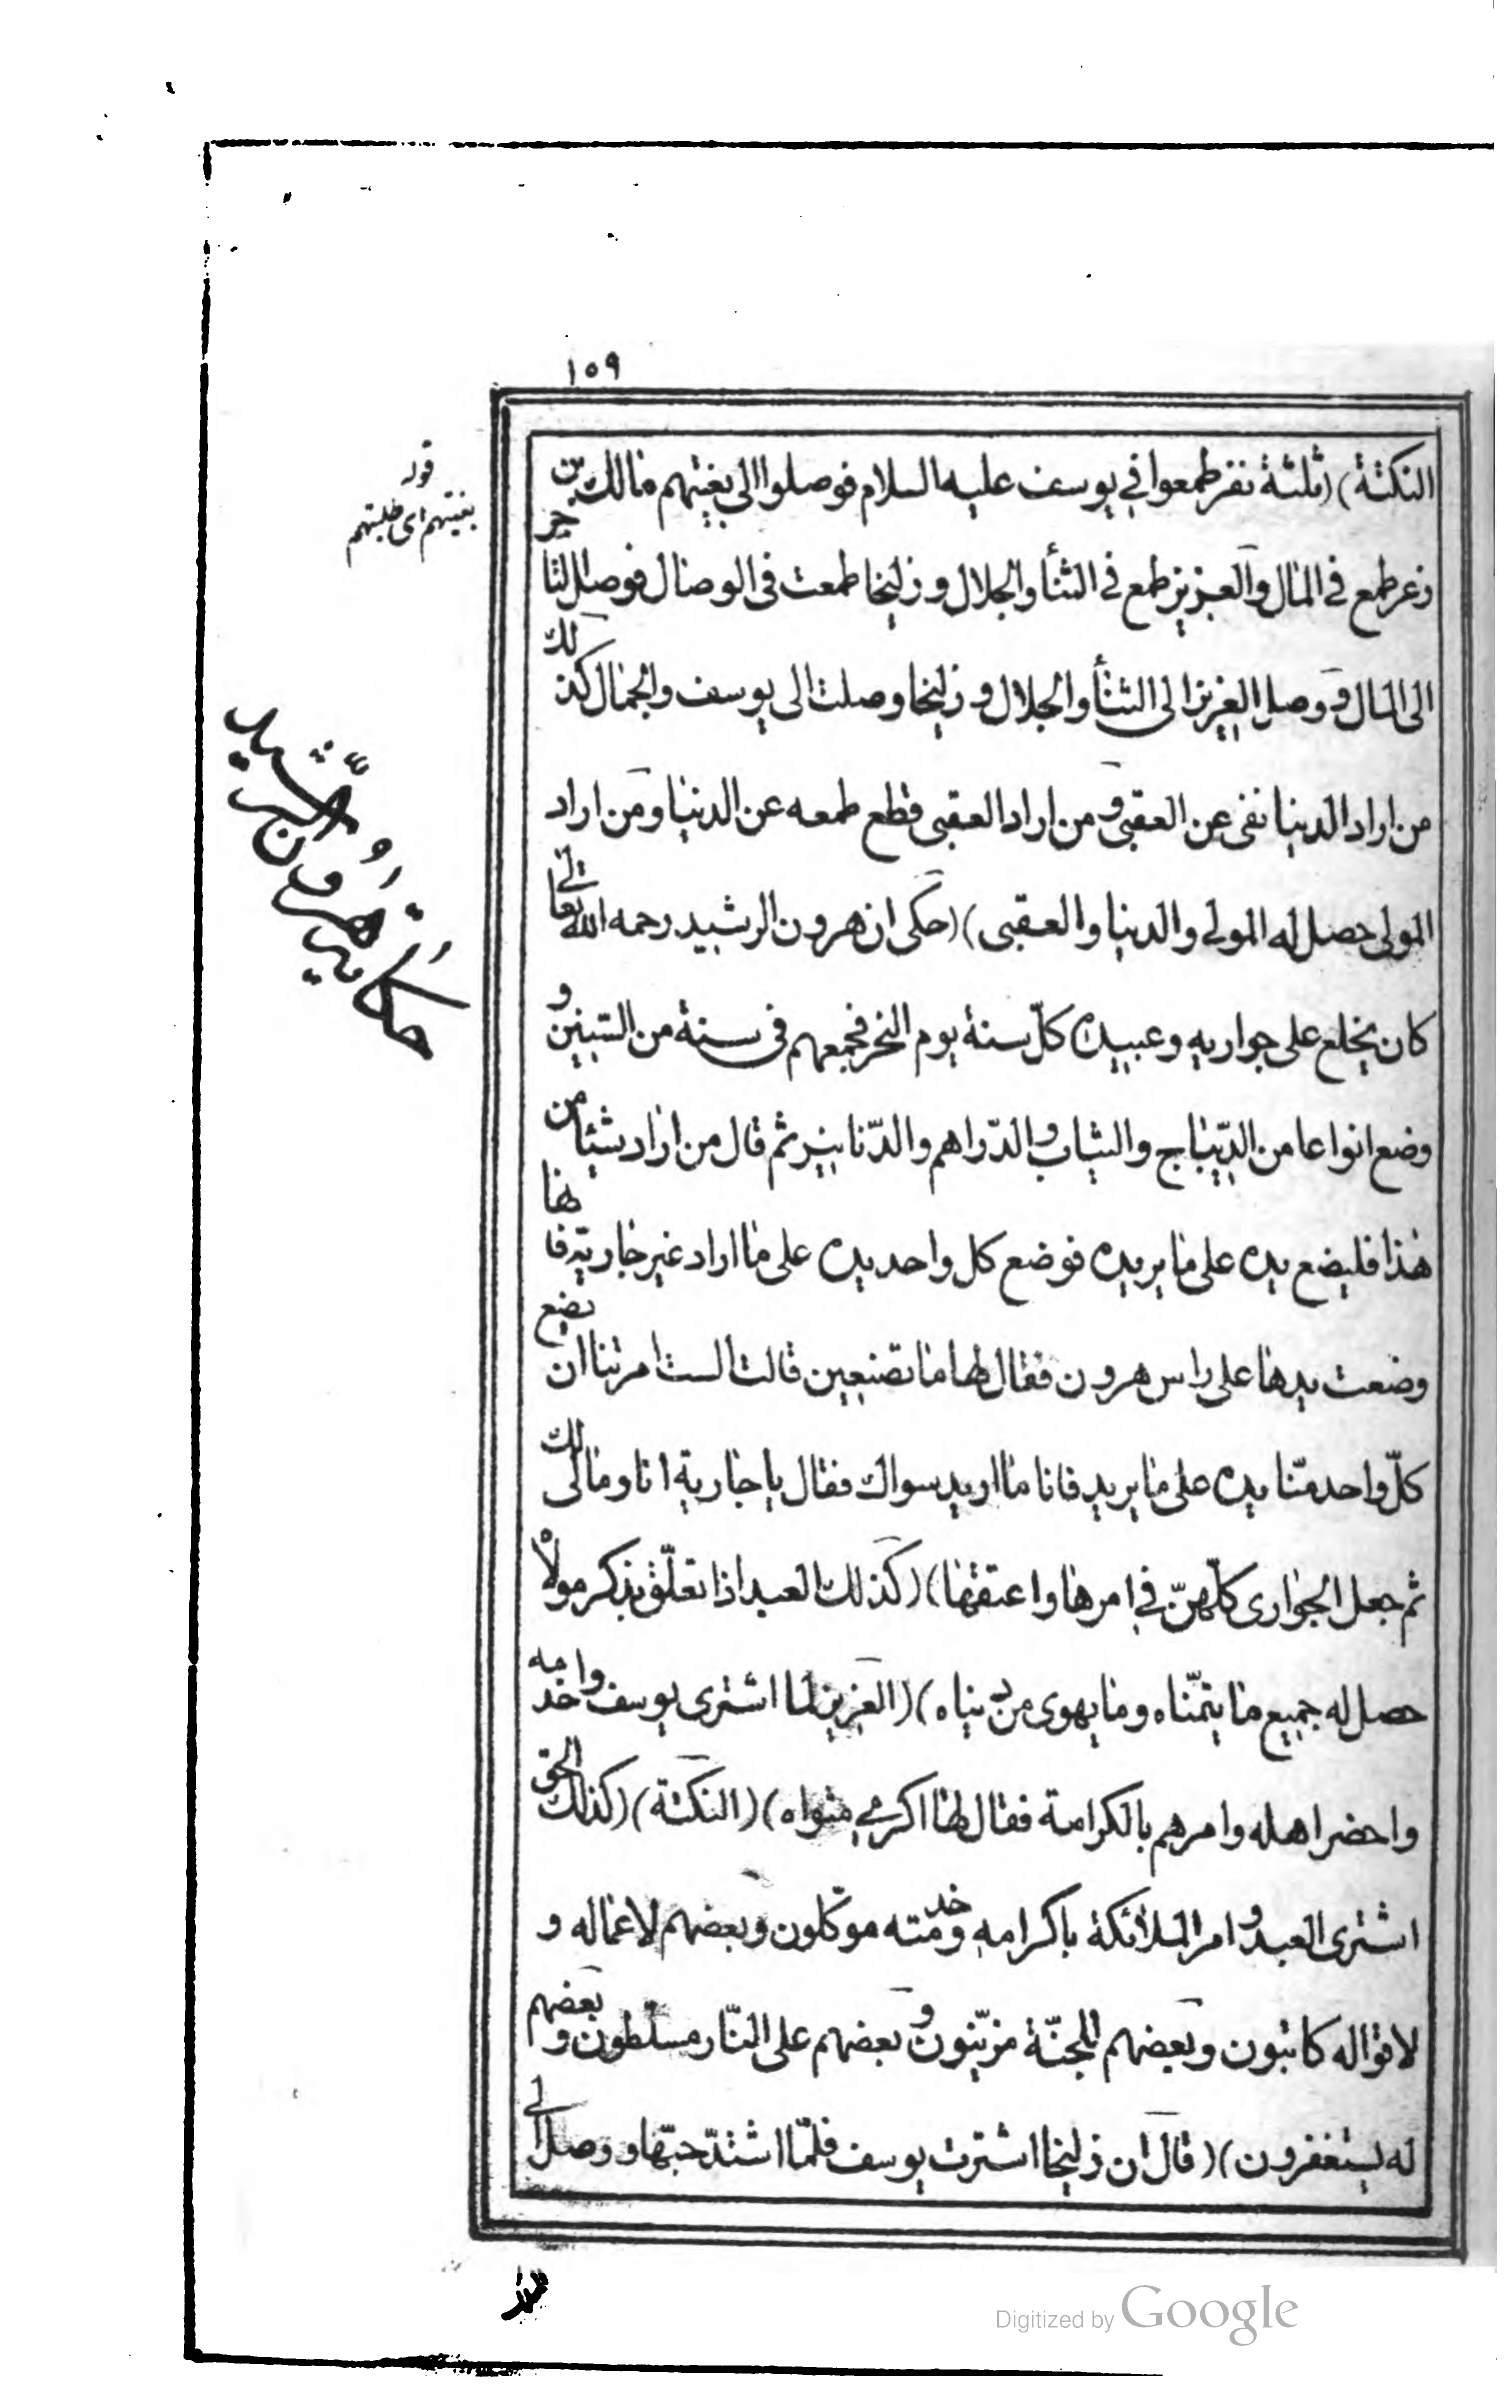 ١٥٩
النكتة) (ثلثة نفر طمعوا في يوسف عليه السلام فوصلوا الى بغيتهم مالك بن
ذعر طمع في المال والعزيز طمع في الثنأ والجلال وزليخا طمعت في الوصال فوصل التاجر
الى المال ووصل العزيز الى الثنأ والجلال وزليخا وصلت الى يوسف والجمال كذلك
من اراد الدنيا نفى عن العقبى ومن اراد العقبى قطع طمعه عن الدنيا ومن اراد
المولى حصل له المولى والدنيا والعقبى) (حكى ان هرون الرشيد رحمه الله تعالى
كان يخلع على جواريه وعبيده كلّ سنة يوم النحر فجمعهم في سنة من السّنين و
وضع انواعا من الدّيباج والثياب والدّراهم والدّنانير ثم قال من اراد شيئا من
هذا فليضع يده على ما يريده فوضع كل واحد يده على ما اراد غير جارية فانها
وضعت يدها على راس هرون فقال لها ما تصنعين قالت الست امرتنا ان تضع
كلّ واحد منّا يده على ما يريد فانا ما اريد سواك فقال يا جارية انا ومالى لك
ثم جعل الجوارى كلّهنّ في امرها واعتقها) (كذلك العبد اذا تعلّق بذكر مولاه
حصل له جميع ما يتمنّاه وما يهوى من دنياه) (العزيز لما اشترى يوسف واخدمه
واحضر اهله وامرهم بالكرامة فقال لها اكرمي مثواه) (النكتة) (كذلك الحق
اشترى العبد وامر الملائكة باكرامه وخدمته موكّلون وبعضهم لاعماله و
لاقواله كاتبون وبعضهم للجنّة مزيّنون وبعضهم على النّار مسلّطون وبعضهم
له يستغفرون) (قال ان زليخا اشترت يوسف فلمّا اشتدّ حبّها ووصل الى
قوله
بغيتهم اى طلبتهم
هرون الرّشيد
Digitized by Google